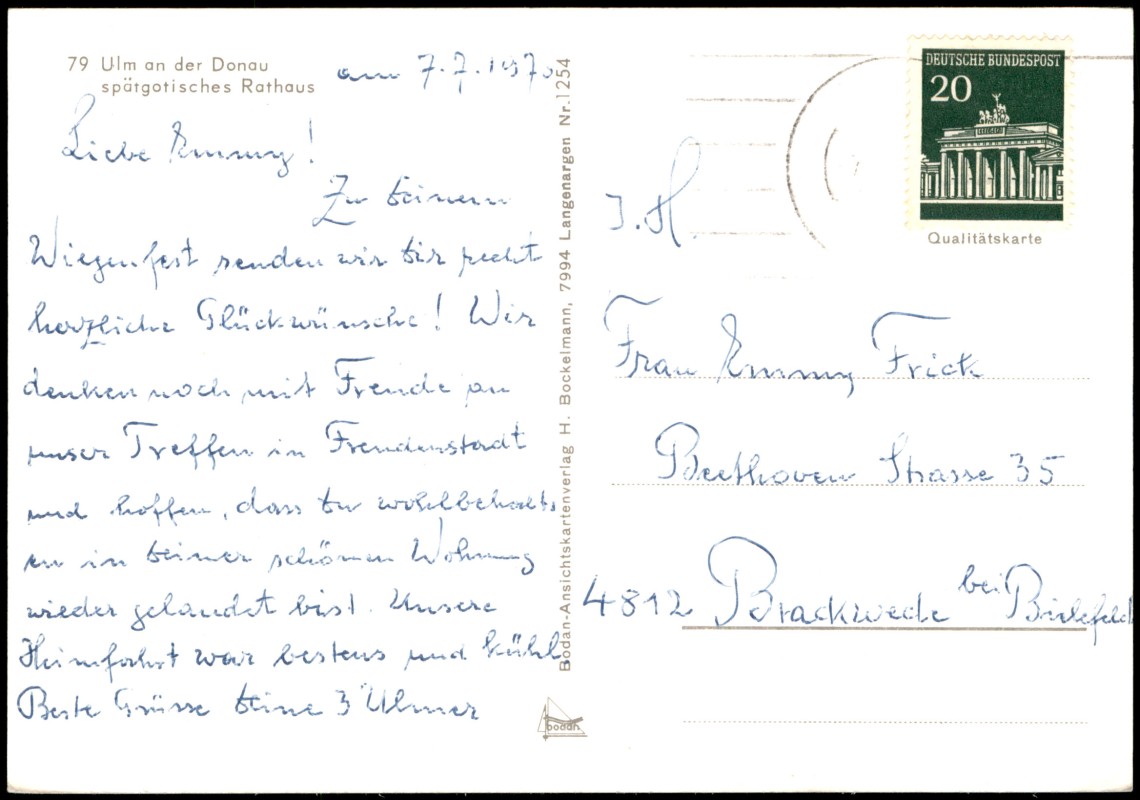 79 Ulm an der Donau
spätgotisches Rathaus
am 7.7.1970
Liebe Emmy!
Zu deinem
Wiegenfest senden wir dir recht
herzliche Glückwünsche! Wir
denken noch mit Freude an
unser Treffen in Freudenstadt
und hoffen, dass du wohlbehalt-
en in deiner schönen Wohnung
wieder gelandet bist. Unsere
Heimfahrt war bestens und kühl.
Beste Grüsse deine 3 Ulmer
Bodan-Ansichtskartenverlag H. Bockelmann, 7994 Langenargen Nr. 1254
bodan
DEUTSCHE BUNDESPOST
20
Qualitätskarte
I. H.
Frau Emmy Frick
Beethoven Strasse 35
4812 Brackwede bei Bielefeld